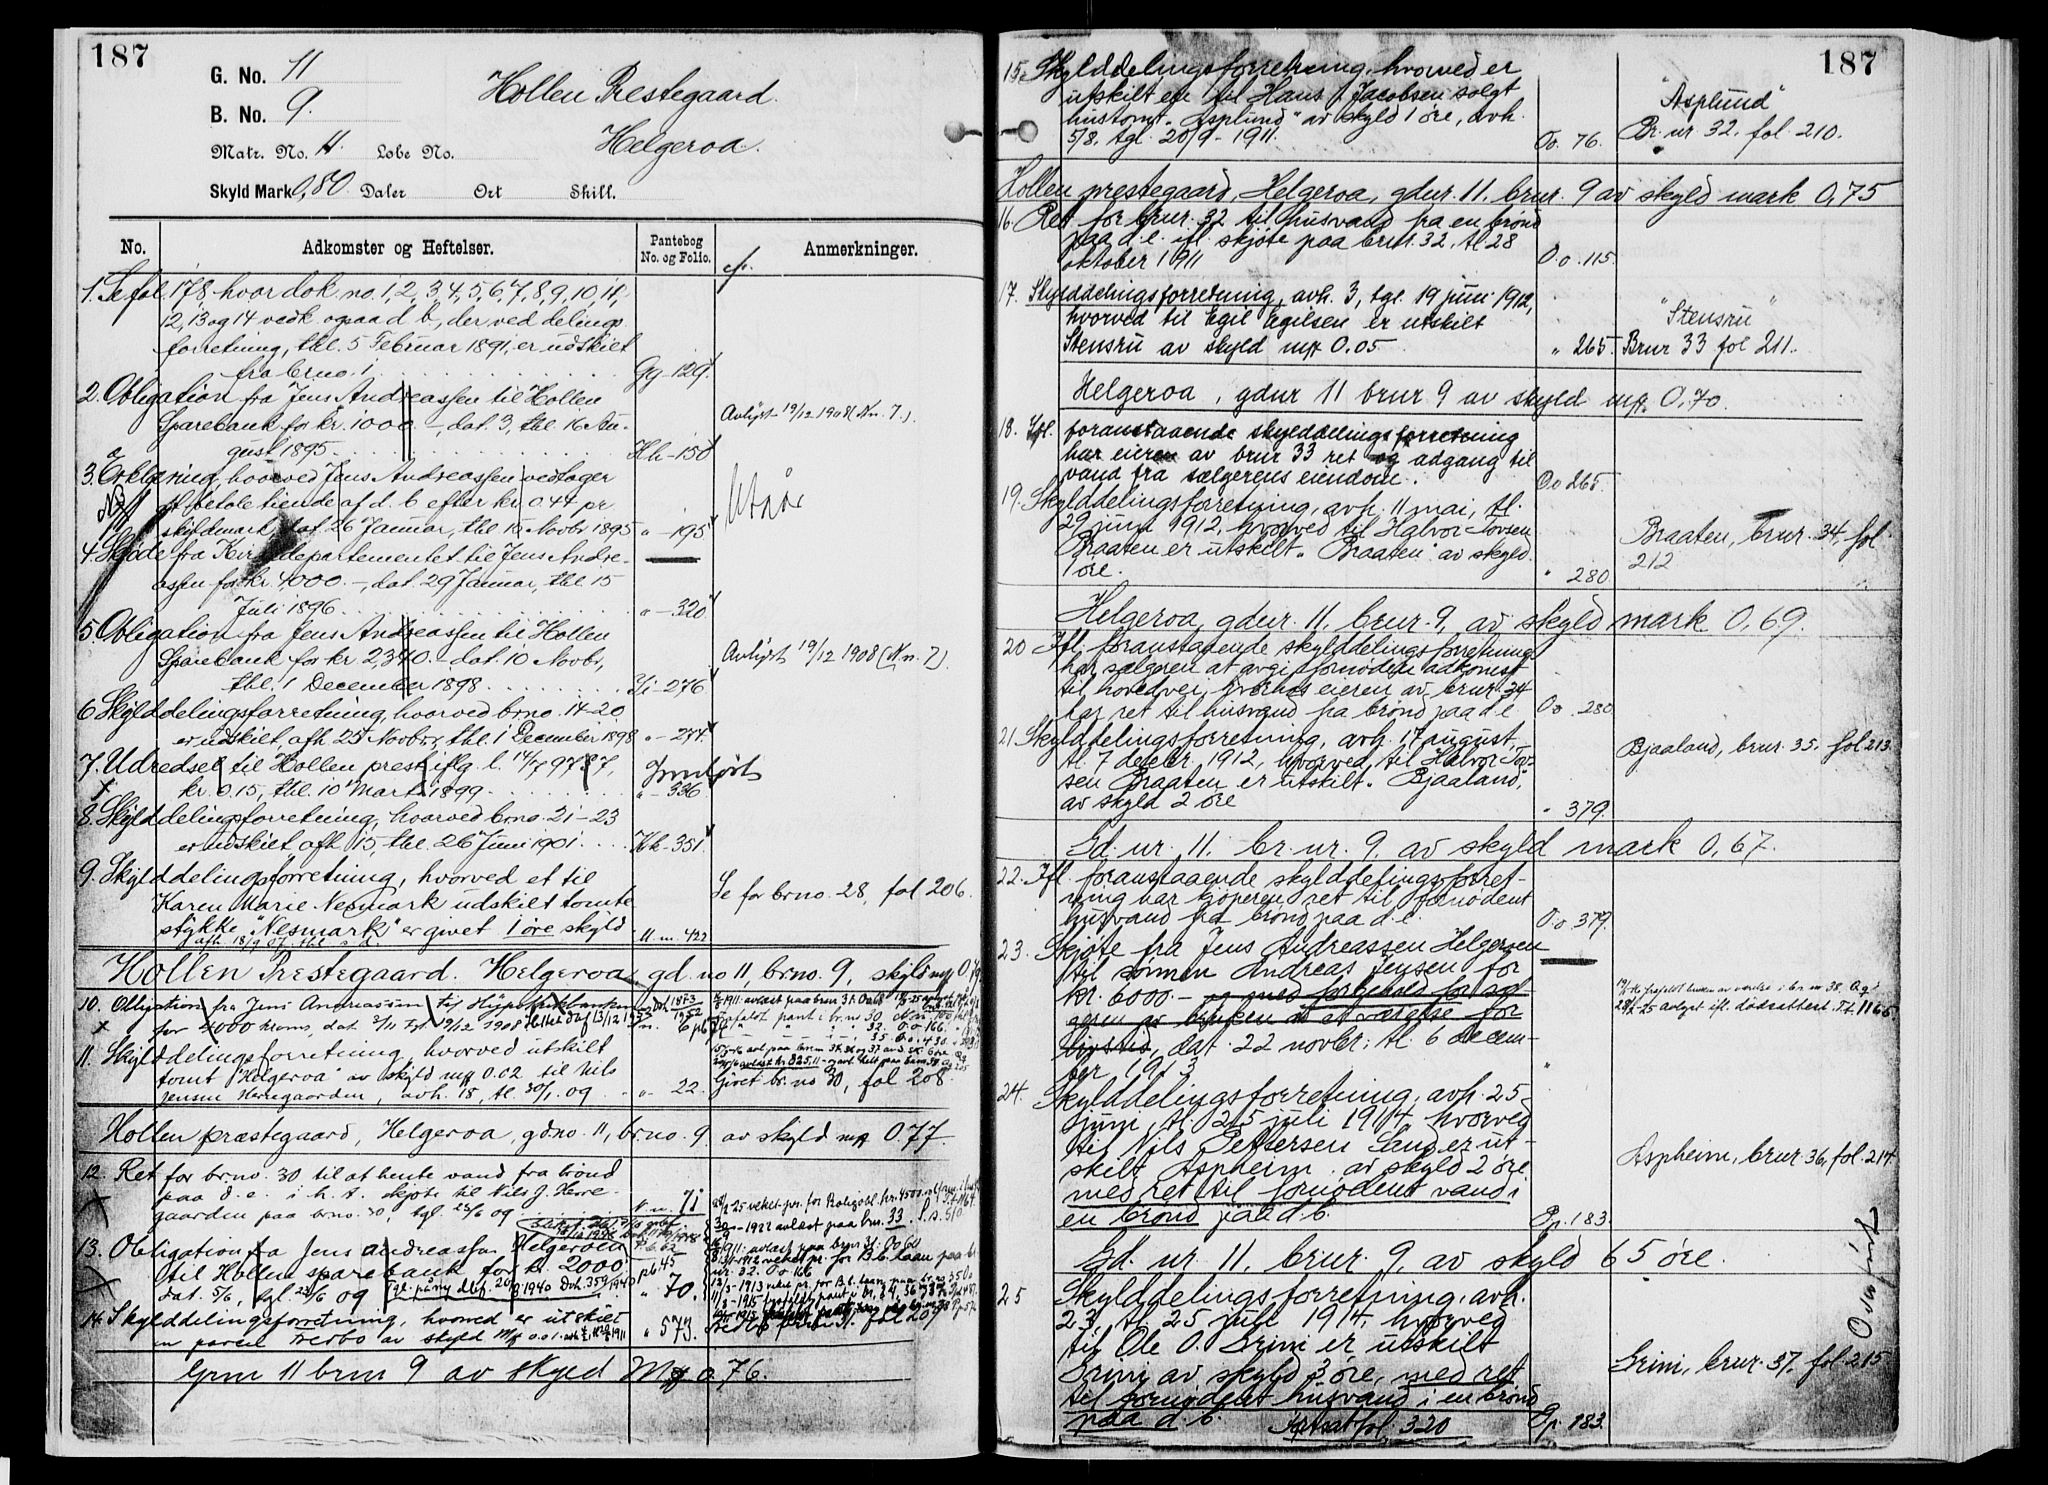 187
G. No. 11
Hollen Prestegaard.
B. No. 9.
Helgeroa.
Matr. No. 11. Løbe No.
Skyld Mark 0,80 Daler Ort Skill.
No. Adkomster og Heftelser. Pantebog No. og Folio. Anmerkninger.
1. Se fol. 178 hvor dok. no. 1, 2, 3, 4, 5, 6, 7, 8, 9, 10, 11,
12, 13 og 14 vedk. ogsaa d. b., der ved delings-
forretning, thl. 5 Februar 1891, er udskilt
fra brno. 1 Gg - 129.
2. Obligation fra Jens Andreassen til Hollen
Sparebank for kr. 1000 -, dat. 3, thl. 16 Au-
gust 1895 Hh - 150
Avlyst 19/12 1908 (N n. 7.)
3. Erklæring, hvorved Jens Andreassen vedtager
at betale tiende af d. b. efter kr. 0.44 pr.
skyldmark, dat. 26 Januar, thl. 15 Novbr 1895 " - 195
4. Skjøde fra Kirkedepartementet til Jens Andre-
assen for kr. 4000. -, dat. 29 Januar, thl. 15
Juli 1896 " - 320
5. Obligation fra Jens Andreassen til Hollen
Sparebank for kr 2,340. - dat. 10 Novbr,
thl. 1 December 1898 Ii - 276
Avlyst 19/12 1908 (N n. 7).
6 Skylddelingsforretning, hvorved brno. 14-20
er udskilt, afh. 25 Novbr, thl. 1 December 1898 " - 277.
7. Udredsel til Hollen prest iflg. l. 14/7 97 § 7,
kr. 0.15, thl. 10 Marts 1899 " - 336
Innløst
8. Skylddelingsforretning, hvorved brno. 21-23
er udskilt afh. 15, thl. 26 Juni 1901 Kk - 351.
9. Skylddelingsforretning, hvorved et til
Karen Marie Nesmark udskilt tomte
stykke "Nesmark" er givet 1 øre skyld
afh. 18/9 07. thl. s. d. M m. 422
Se for brno. 28, fol 206.
Hollen Prestegaard. Helgeroa gd. no 11, brno. 9, skyld mk 0.79
10. Obligation fra Jens Andreassen til Hypothekbanken
for 4000 kroner, dat. 3/11 tgl. 19/12 1908
11. Skylddelingsforretning, hvorved utskilt
tomt "Helgeroa" av skyld mk 0.02 til Nils
Jensen Herregaarden, avh. 18, tl. 30/1. 09 " 22.
Givet br. no 30, fol 208
Hollen præstegaard, Helgeroa, gd.no. 11, br.no. 9 av skyld mk 0.77
12. Ret for brno. 30 til at hente vand fra brønd
paa d. e. i h. t. skjøte til Nils J. Herre-
gaarden paa brno. 30, tgl. 23/6 09 N n. 71
13. Obligation fra Jens Andreassen Helgeroen
til Hollen sparebank for kr. 2000.
dat. 5/6, tgl. 23/6 09 " 70.
14. Skylddelingsforretning, hvorved er utskilt
en parsel Tredbo av skyld Mk 0.01 " 573.
Grn 11 brn 9 av skyld Mk 0.76.
187
15. Skylddelingsforretning, hvorved er
utskilt en til Hans Jacobsen solgt
hustomt "Asplund" av skyld 1 øre, avh.
5/8, tgl. 20/9 - 1911. Oo. 76.
"Asplund"
Br. nr 32, fol 210.
Hollen prestegaard, Helgeroa, gdnr. 11, brnr. 9 av skyld mark 0,75
16. Ret for brnr. 32 til husvand fra en brønd
paa d. e. ifl. skjøte paa brnr. 32, tl 28
oktober 1911 O.o. 115.
17. Skylddelingsforretning, avh. 3, tgl. 19 juni 1912,
hvorved til Egil Egilsen er utskilt
Stensrü av skyld mk 0.05 " 265.
"Stensrü"
Brnr 33 fol 211.
Helgeroa, gdnr 11 brnr 9 av skyld mk. 0,70.
18. Ifl. foranstaaende skylddelingsforretning
har eieren av brnr 33 ret og adgang til
vand fra sælgerens eiendom. Oo 265.
19. Skylddelingsforretning, avh. 11 mai, tl.
29 juni 1912, hvorved til Halvor Tovsen
Braaten er utskilt "Braaten" av skyld
1 øre. " 280
Braaten, brnr. 34, fol
212
Helgeroa, gdnr. 11, brnr. 9, av skyld mark 0,69.
20 Ifl. foranstaaende skylddelingsforretning
har sælgeren at avgi fornøden adkomst
til hovedvei, hvorhos eieren av brnr. 34
har ret til husvand fra brønd paa d. e. Oo. 280
21 Skylddelingsforretning, avh. 17 august
tl. 7 decbr. 1912, hvorved til Halvor Tov-
sen Braaten er utskilt "Bjaaland",
av skyld 2 øre " 379.
Bjaaland, brnr. 35. fol 213.
Gd. nr. 11, br. nr. 9, av skyld mark 0,67.
22. Ifl. foranstaaende skylddelingsforret-
ning har kjøperen ret til fornødent
husvand fra brønd paa d. e. O.o 379.
23. Skjøte fra Jens Andreassen Helgeroen
til sønnen Andreas Jensen for
kr. 6000. - og med forbehold for sæl-
geren av bruken av et værelse for
livstid, dat. 22 novbr., tl. 6 decem-
ber 1913 "
24. Skylddelingsforretning, avh. 25
juni, tl. 25 juli 1914 hvorved
til Nils Pettersen Sand er ut-
skilt Aspheim av skyld 2 øre
med ret til fornødent vand i
en brønd paa d. b. Pp. 183.
Aspheim, brnr. 36, fol. 214.
Gd. nr. 11, brnr. 9, av skyld 65 øre.
25 Skylddelingsforretning, avh.
23, tl. 25 juli 1914, hvorved
til Ole O. Grini er utskilt
Grini av skyld 3 øre, med ret
til fornødent husvand i en brønd
paa d. b. Pp. 183.
Grini, brnr. 37, fol. 215
Overført
Fortsat fol. 320